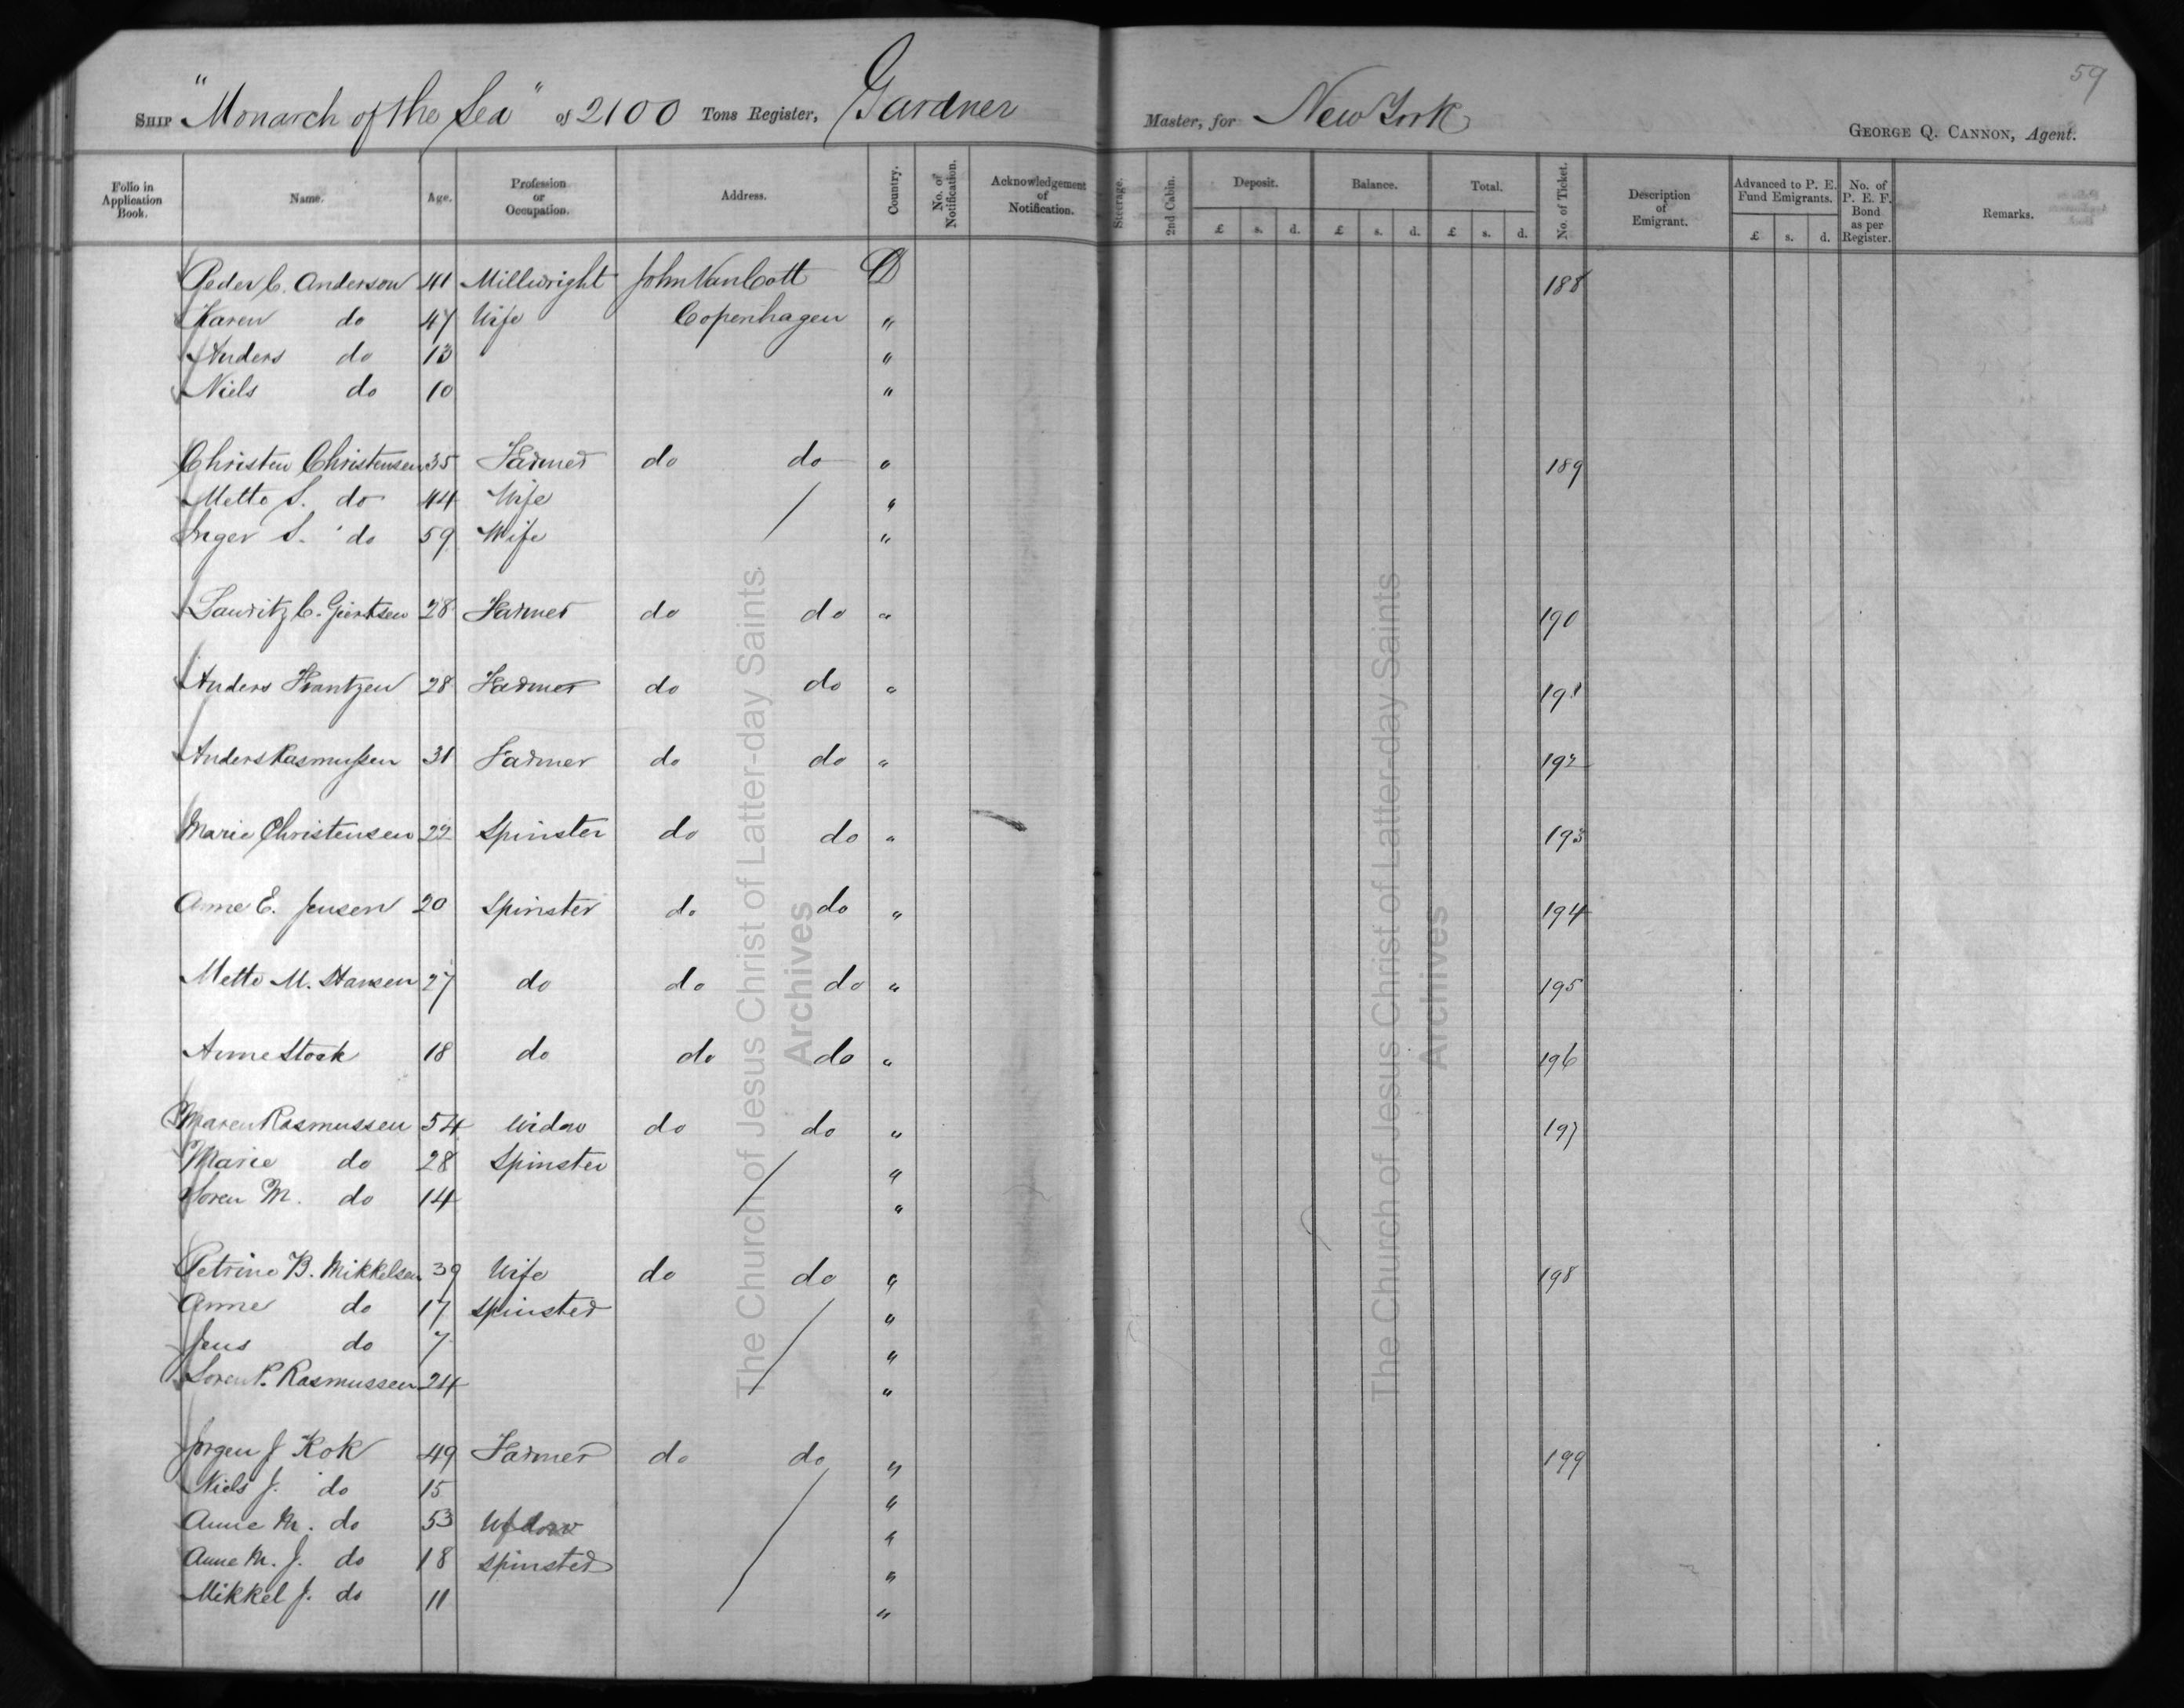 59
Ship "Monarch of the Sea" of 2100 Tons Register, Gardner Master, for New York George Q. Cannon, Agent.
Folio in Application Book. Name. Age. Profession or Occupation. Address. Country. No. of Notification. Acknowledgement of Notification. Steerage. 2nd Cabin. Deposit. Balance. Total. No. of Ticket. Description of Emigrant. Advanced to P. E. Fund Emigrants. No. of P. E. F. Bond as per Register. Remarks.
£ s. d. £ s. d. £ s. d. £ s. d.
Peder C. Anderson 41 Millwright John Van Cott D 188
Karen do 47 Wife Copenhagen "
Anders do 13 "
Niels do 10 "
Christen Christensen 35 Farmer do do " 189
Mette S. do 44 Wife "
Inger S. do 59 Wife "
Lauritz C. Giertsen 28 Farmer do do " 190
Anders Frantzen 28 Farmer do do " 191
Anders Rasmussen 31 Farmer do do " 192
Marie Christensen 22 Spinster do do " 193
Anne E. Jensen 20 Spinster do do " 194
Mette M. Hansen 27 do do do " 195
Anne Stock 18 do do do " 196
Maren Rasmussen 54 Widow do do " 197
Marie do 28 Spinster "
Soren M. do 14 "
Petrine B. Mikkelsen 39 Wife do do " 198
Anne do 17 Spinster "
Jens do 7 "
Soren P. Rasmussen 24 "
Jorgen J Kok 49 Farmer do do " 199
Niels J. do 15 "
Anne M. do 53 "
Anne M. J. do 18 Spinster "
Mikkel J. do 11 "
The Church of Jesus Christ of Latter-day Saints
Archives
The Church of Jesus Christ of Latter-day Saints
Archives